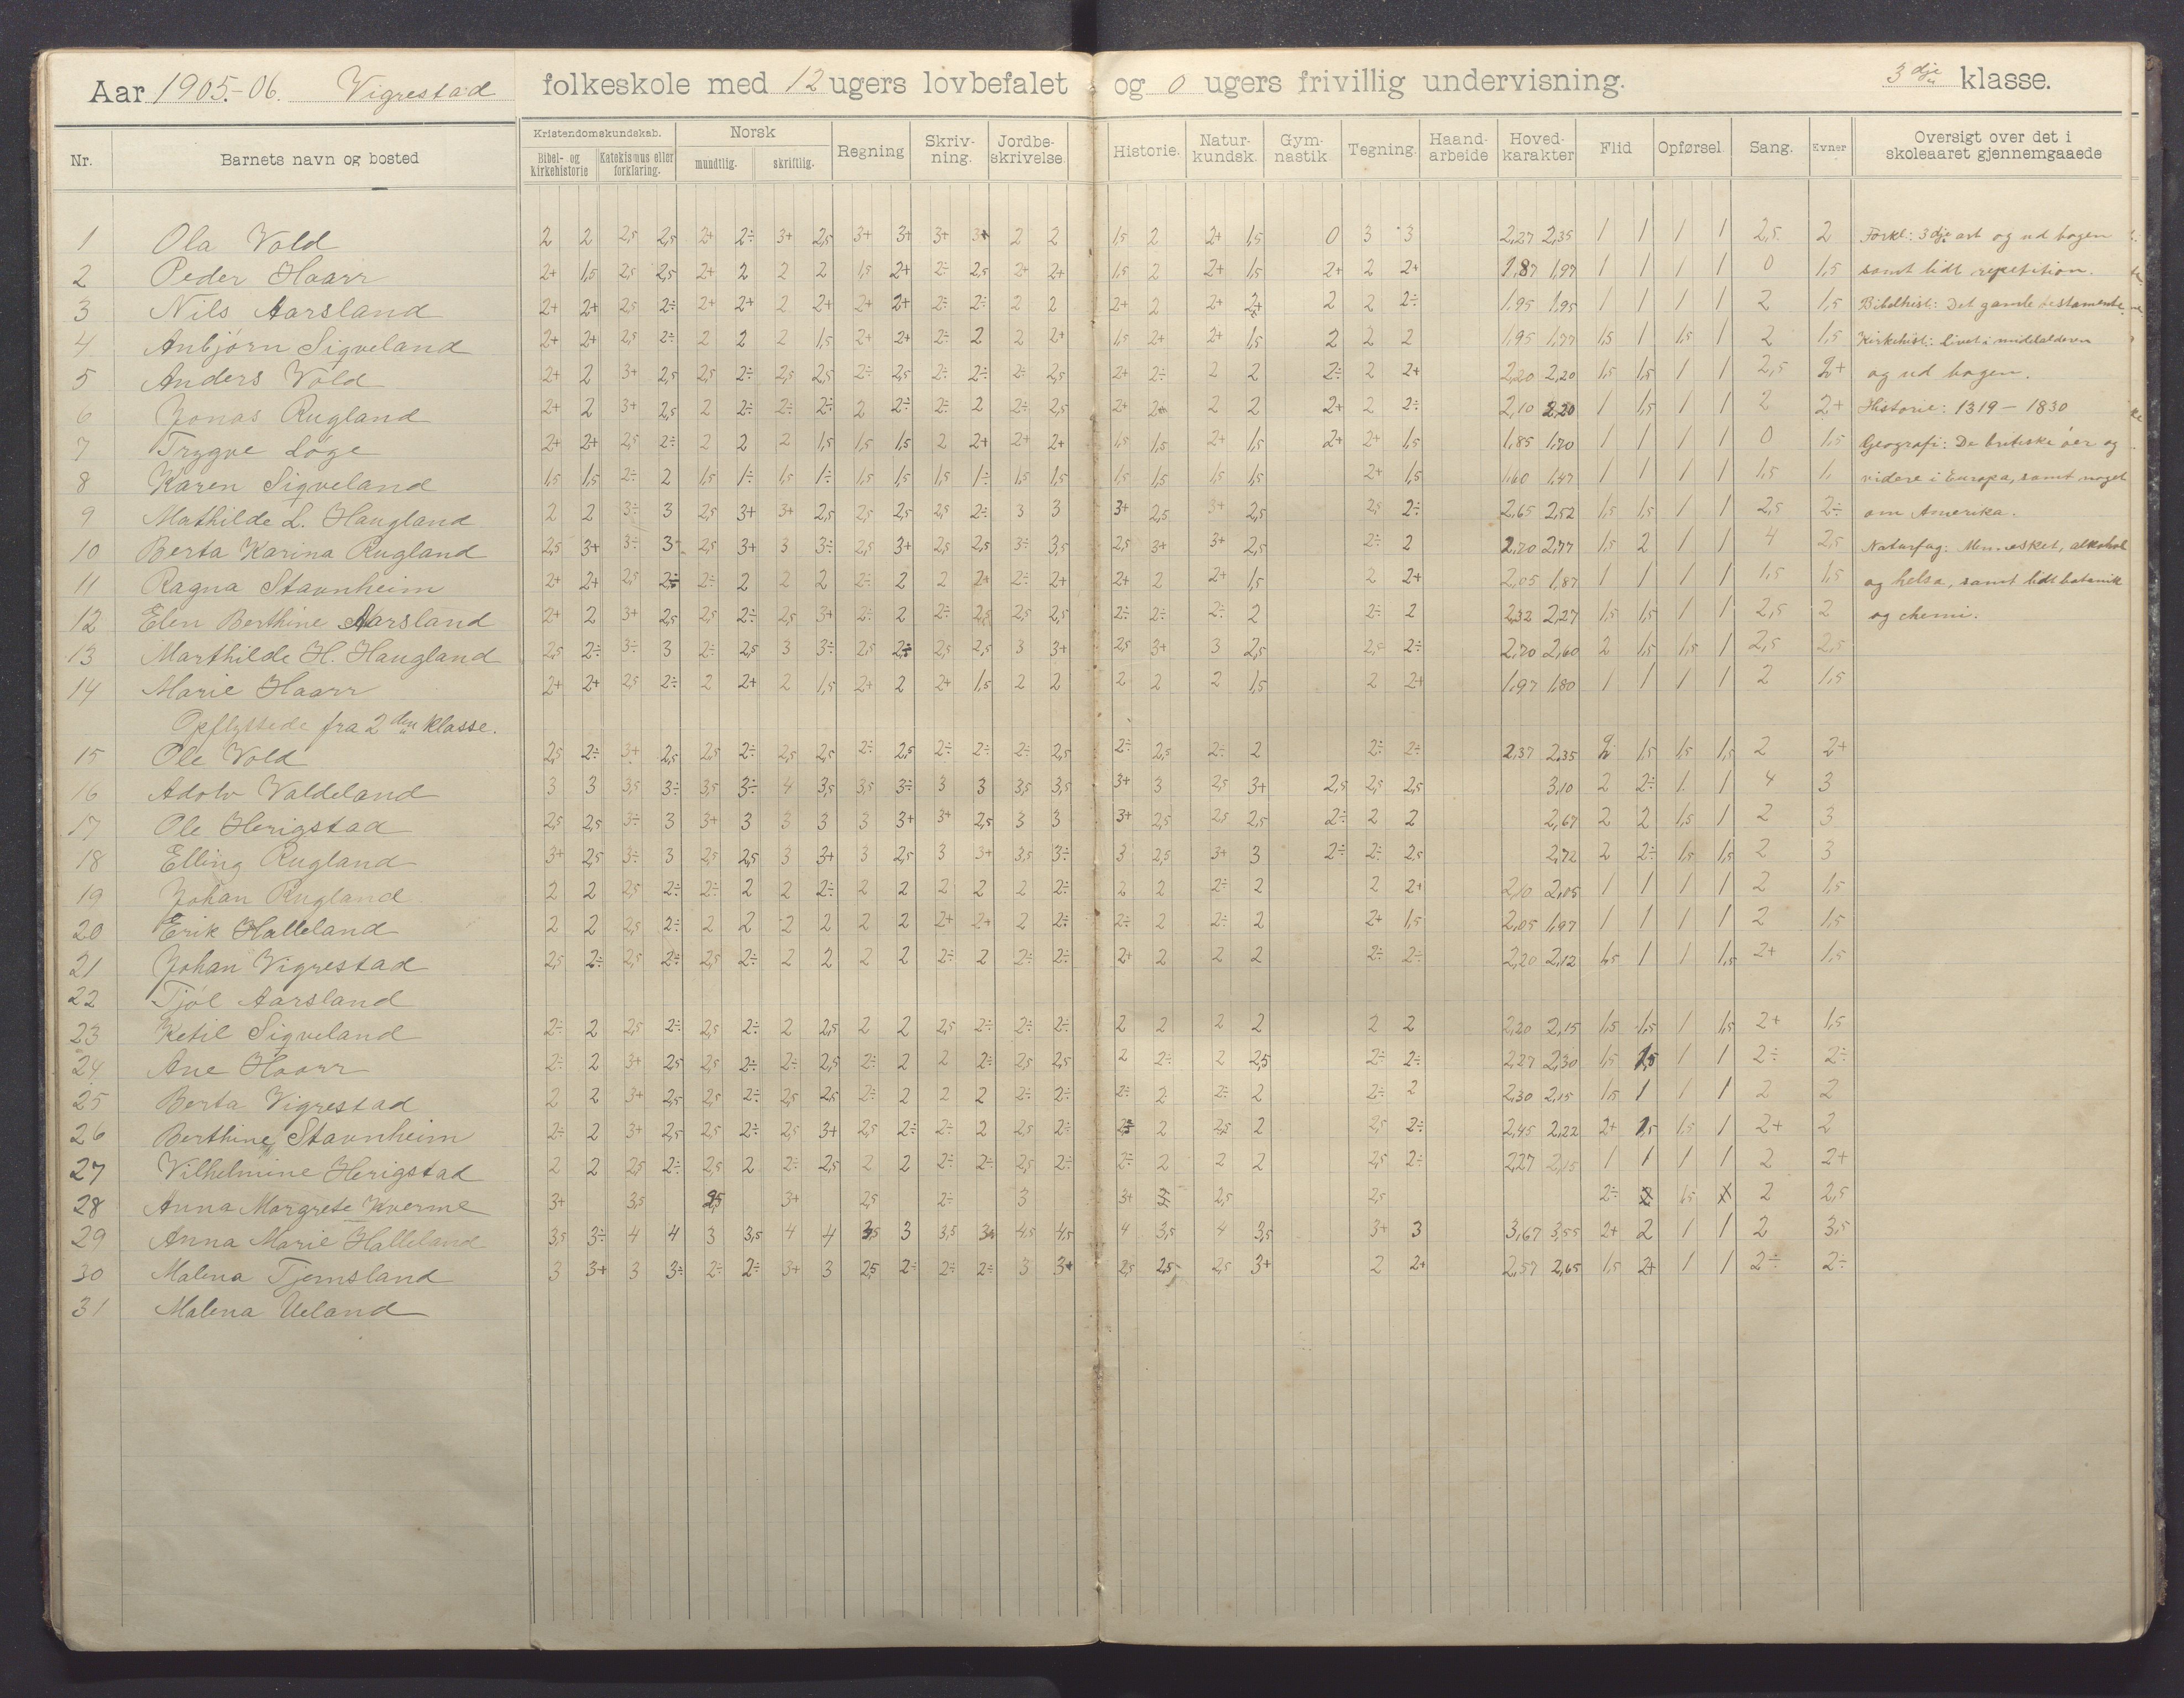 Aar 1905-06. Vigrestad folkeskole med 12 ugers lovbefalet og 0 ugers frivillig undervisning. 3dje klasse.
Nr. Barnets navn og bosted Kristendomskundskab. Norsk Regning Skriv-ning. Jordbe-skrivelse. Historie. Natur-kundsk. Gym-nastik Tegning. Haand-arbeide Hoved-karakter Flid Opførsel Sang. Evner Oversigt over det i skoleaaret gjennemgaaede
Bibel- og kirkehistorie Katekismus eller forklaring. mundtlig. skriftlig.
1 Ola Vold 2 2 2,5 2,5 2+ 2÷ 3+ 2,5 3+ 3+ 3+ 3+ 2 2 1,5 2 2+ 1,5 0 3 3 2,27 2,35 1 1 1 1 2,5 2 Forkl: 3dje art og ud bogen
2 Peder Haarr 2+ 1,5 2,5 2,5 2+ 2 2 2 1,5 2+ 2÷ 2,5 2+ 2+ 1,5 2 2+ 1,5 2+ 2 2+ 1,87 1,97 1 1 1 1 0 1,5 samt lidt repetition.
3 Nils Aarsland 2+ 2+ 2,5 2÷ 2+ 2+ 2 2+ 2+ 2+ 2÷ 2÷ 2 2 2+ 2 2+ 2+ 2 2 2÷ 1,95 1,95 1 1 1 1 2 1,5 Bibelhist: Det gamle testamente.
4 Anbjørn Sigveland 2+ 2+ 2,5 2÷ 2 2 2 1,5 2+ 2+ 2÷ 2 2 2+ 1,5 2+ 2+ 1,5 2 2 2 1,95 1,77 1,5 1 1,5 1 2 1,5 Kirkehist: livet i middelalderen
5 Anders Vold 2+ 2 3+ 2,5 2,5 2÷ 2,5 2,5 2÷ 2,5 2÷ 2÷ 2÷ 2,5 2+ 2÷ 2 2 2÷ 2 2+ 2,20 2,20 1,5 1,5 1 1 2,5 2+ og ud bogen.
6 Jonas Rugland 2+ 2 3+ 2,5 2 2÷ 2÷ 2÷ 2 2÷ 2÷ 2 2÷ 2,5 2+ 2+ 2 2 2+ 2 2÷ 2,10 2,20 1 1,5 1 1 2 2+ Historie: 1319 - 1830
7 Trygve Løge 2+ 2+ 2,5 2÷ 2 2 2 1,5 1,5 1,5 2 2+ 2+ 2+ 1,5 1,5 2+ 1,5 2+ 2+ 1,5 1,85 1,70 1 1 1 1 0 1,5 Geografi: De britiske øer og
8 Karen Sigveland 1,5 1,5 2÷ 2 1,5 1÷ 1,5 1÷ 1,5 1,5 1,5 1÷ 1,5 1,5 1,5 1,5 1,5 1,5 2+ 1,5 1,60 1,47 1 1 1 1 1,5 1, videre i Europa, samt noget
9 Mathilde L. Haugland 2 2 3÷ 3 2,5 3+ 3+ 2,5 2,5 2,5 2,5 2÷ 3 3 3+ 2,5 3+ 2,5 2,5 2÷ 2,65 2,52 1,5 1,5 1 1 2,5 2÷ om Amerika.
10 Berta Karina Rugland 2,5 3+ 3÷ 3 2,5 3+ 3 3÷ 2,5 3+ 2,5 2,5 3÷ 3,5 2,5 3+ 3+ 2,5 2÷ 2 2,70 2,77 1,5 2 1 1 4 2,5 Naturfag: Mennesket, alkohol
11 Ragna Stavnheim 2+ 2+ 2,5 2÷ 2÷ 2 2 2 2÷ 2 2 2+ 2÷ 2+ 2+ 2 2+ 1,5 2 2+ 2,05 1,87 1 1 1 1 1,5 1,5 og helsa, samt lidt botanik
12 Elen Berthine Aarsland 2+ 2 3+ 2,5 2,5 2÷ 2,5 3+ 2÷ 2 2÷ 2,5 2,5 2,5 2÷ 2÷ 2÷ 2 2÷ 2 2,32 2,27 1,5 1,5 1 1 2,5 2 og chemi.
13 Marthilde H. Haugland 2,5 2÷ 3÷ 3 2÷ 2,5 3 3÷ 2,5 2÷ 2,5 2,5 3 3+ 2,5 3+ 3 2,5 2,5 2÷ 2,70 2,60 2 1,5 1,5 1 2,5 2,5
14 Marie Haarr 2+ 2+ 2,5 2÷ 2 2+ 2 1,5 2+ 2 2+ 1,5 2 2 2 2 2 1,5 2 2+ 1,97 1,80 1 1 1 1 2 1,5
Opflyttede fra 2den klasse.
15 Ole Vold 2,5 2÷ 3+ 2,5 2,5 2÷ 2,5 2,5 2÷ 2,5 2÷ 2÷ 2÷ 2,5 2÷ 2,5 2÷ 2 2÷ 2÷ 2,37 2,35 2 1,5 1,5 1,5 2 2+
16 Adolv Valdeland 3 3 3,5 3÷ 3,5 3÷ 4 3,5 3,5 3÷ 3 3 3,5 3,5 3+ 3 2,5 3+ 2,5 2,5 2,5 3,10 2 2÷ 1 1 4 3
17 Ole Herigstad 2,5 2,5 3÷ 3 3+ 3 3 3 3 3+ 3+ 2,5 3 3 3+ 2,5 2,5 2,5 2÷ 2 2 2,67 2 2 1,5 1 2 3
18 Elling Rugland 3+ 2,5 3÷ 3 2,5 2,5 3 3+ 3 2,5 3 3+ 3,5 3÷ 3 2,5 3+ 3 2÷ 2÷ 2,5 2,72 2 2÷ 1,5 1,5 2 3
19 Johan Rugland 2 2 2,5 2÷ 2÷ 2 2 2÷ 2 2 2 2 2 2÷ 2 2 2÷ 2 2 2+ 2,10 2,05 1 1 1 1 2 1,5
20 Erik Halleland 2 2 2,5 2÷ 2 2 2 2 2 2 2+ 2+ 2 2÷ 2÷ 2 2÷ 2 2+ 1,5 2,05 1,97 1 1 1 1 2 1,5
21 Johan Vigrestad 2,5 2÷ 2,5 2÷ 2,5 2÷ 2 2 2 2 2÷ 2 2÷ 2÷ 2+ 2 2 2 2÷ 2÷ 2,20 2,12 1,5 1 1 1,5 2+ 1,5
22 Tjøl Aarsland
23 Ketil Sigveland 2÷ 2 2,5 2÷ 2,5 2÷ 2 2,5 2 2 2,5 2÷ 2÷ 2÷ 2 2 2 2 2 2 2,20 2,15 1,5 1,5 1 1,5 2+ 1,5
24 Ane Haarr 2÷ 2 3+ 2,5 2,5 2÷ 2÷ 2,5 2÷ 2 2 2÷ 2,5 2,5 2 2÷ 2 2,5 2÷ 2÷ 2,27 2,30 1,5 1,5 1 1 2÷ 2÷
25 Berta Vigrestad 2 2 3+ 2,5 2,5 2÷ 2,5 2,5 2÷ 2 2 2 2÷ 2÷ 2÷ 2 2÷ 2 2÷ 2 2,30 2,15 1,5 1 1 1 2 2
26 Berthine Stavnheim 2÷ 2 3+ 2,5 2,5 2÷ 2,5 3+ 2,5 2÷ 2÷ 2 2,5 2÷ 2,5 2 2,5 2 2,5 2÷ 2,45 2,22 2+ 1,5 1,5 1 2+ 2
27 Vilhelmine Herigstad 2 2 2,5 2÷ 2,5 2 2÷ 2,5 2 2 2÷ 2÷ 2,5 2÷ 2÷ 2 2 2 2,5 2÷ 2,27 2,15 1 1 1 1 2 2+
28 Anna Margrete Kverme 3+ 3,5 2,5 3+ 2,5 2÷ 3 3+ 2,5 2,5 2÷ 1,5 2 2,5
29 Anna Marie Halleland 3,5 3÷ 4 4 3 3,5 4 4 3,5 3 3,5 3+ 4,5 4,5 4 3,5 4 3,5 3+ 3 3,67 3,55 2+ 2 1 1 2 3,5
30 Malena Tjemsland 3 3+ 3 3÷ 2÷ 2÷ 3+ 3 2,5 2÷ 2÷ 2÷ 3 3+ 2,5 2,5 2,5 3+ 2 2+ 2,57 2,65 1,5 2+ 1 1 2÷ 2÷
31 Malena Ueland